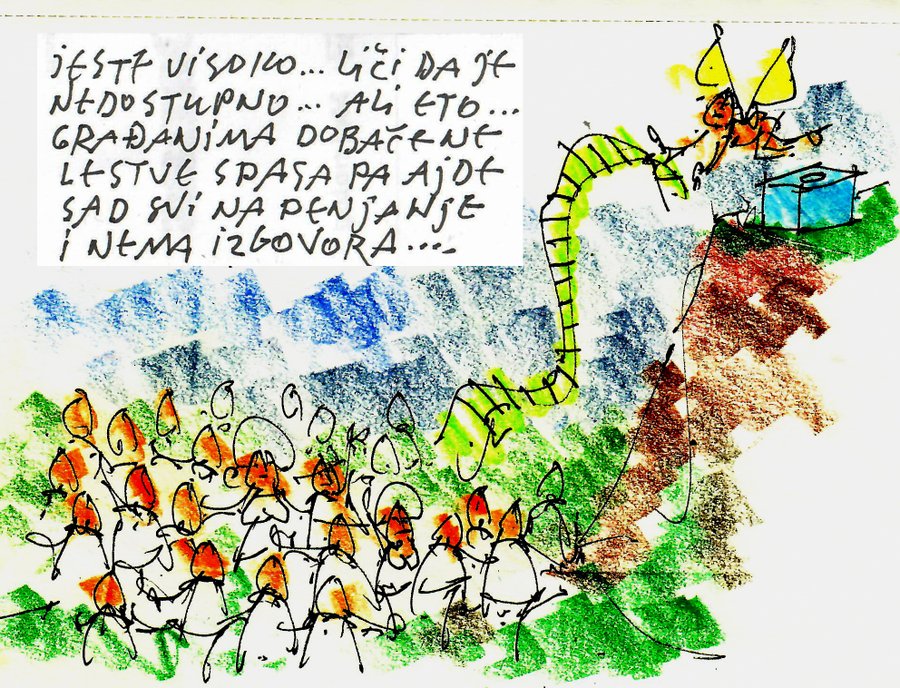 JESTE VISOKO... LIČI DA JE
NEDOSTUPNO... ALI ETO...
GRAĐANIMA DOBAČENE
LESTVE SPASA PA AJDE
SAD SVI NA PENJANJE
I NEMA IZGOVORA....